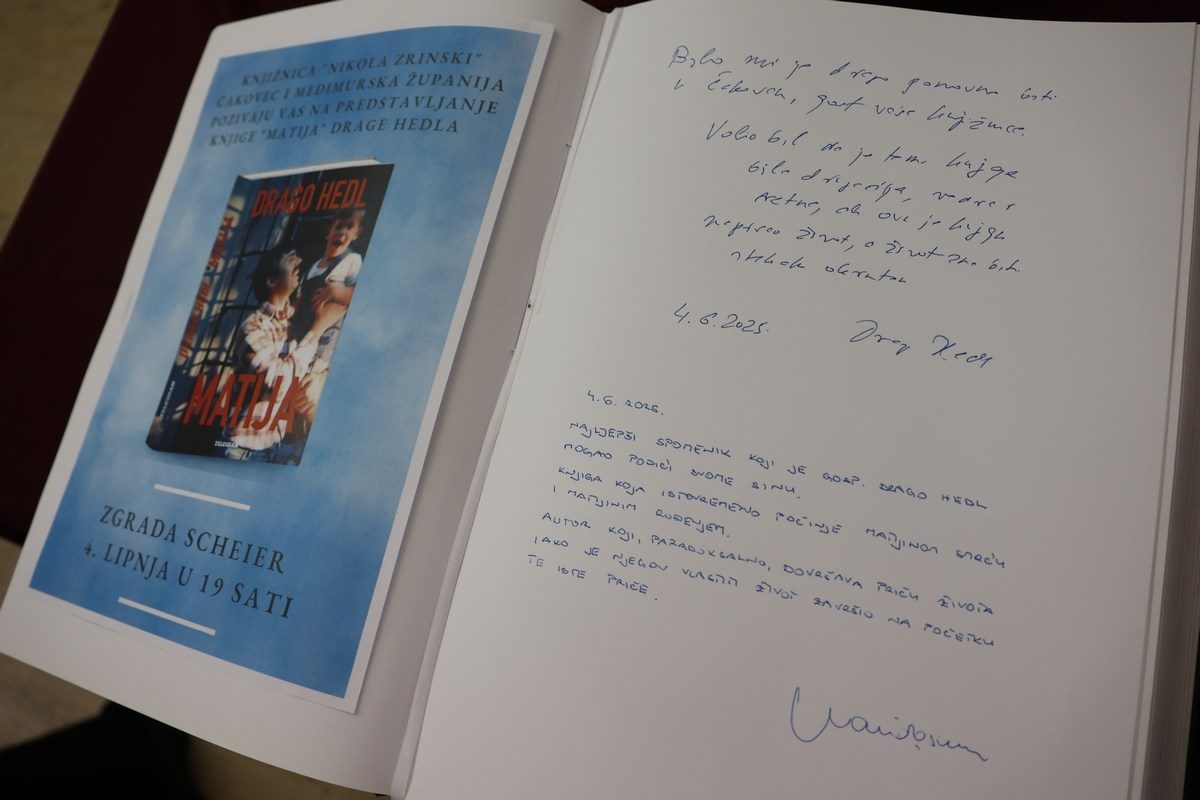 KNJIŽNICA "NIKOLA ZRINSKI"
ČAKOVEC I MEĐIMURSKA ŽUPANIJA
POZIVAJU VAS NA PREDSTAVLJANJE
KNJIGE "MATIJA" DRAGE HEDLA
DRAGO HEDL
MATIJA
TELEGRAM
ZGRADA SCHEIER
4. LIPNJA U 19 SATI
Bilo mi je drago ponovno biti
u Čakovcu, gost vaše knjižnice.
Volio bih da je tema knjiga
bila drugačija, vedra i
sretna, ali ovu je knjigu
napisao život, a život zna biti
okrutan
4. 6. 2025.
Drago Hedl
4. 6. 2025.
NAJLJEPŠI SPOMENIK KOJI JE GOSP. DRAGO HEDL
MOGAO PODIĆI SVOME SINU.
KNJIGA KOJA ISTOVREMENO POČINJE MATIJINOM SMRĆU
I MATIJINIM ROĐENJEM.
AUTOR KOJI, PARADOKSALNO, DOVRŠAVA PRIČU ŽIVOTA
IAKO JE NJEGOV VLASTITI ŽIVOT ZAVRŠIO NA POČETKU
TE ISTE PRIČE.